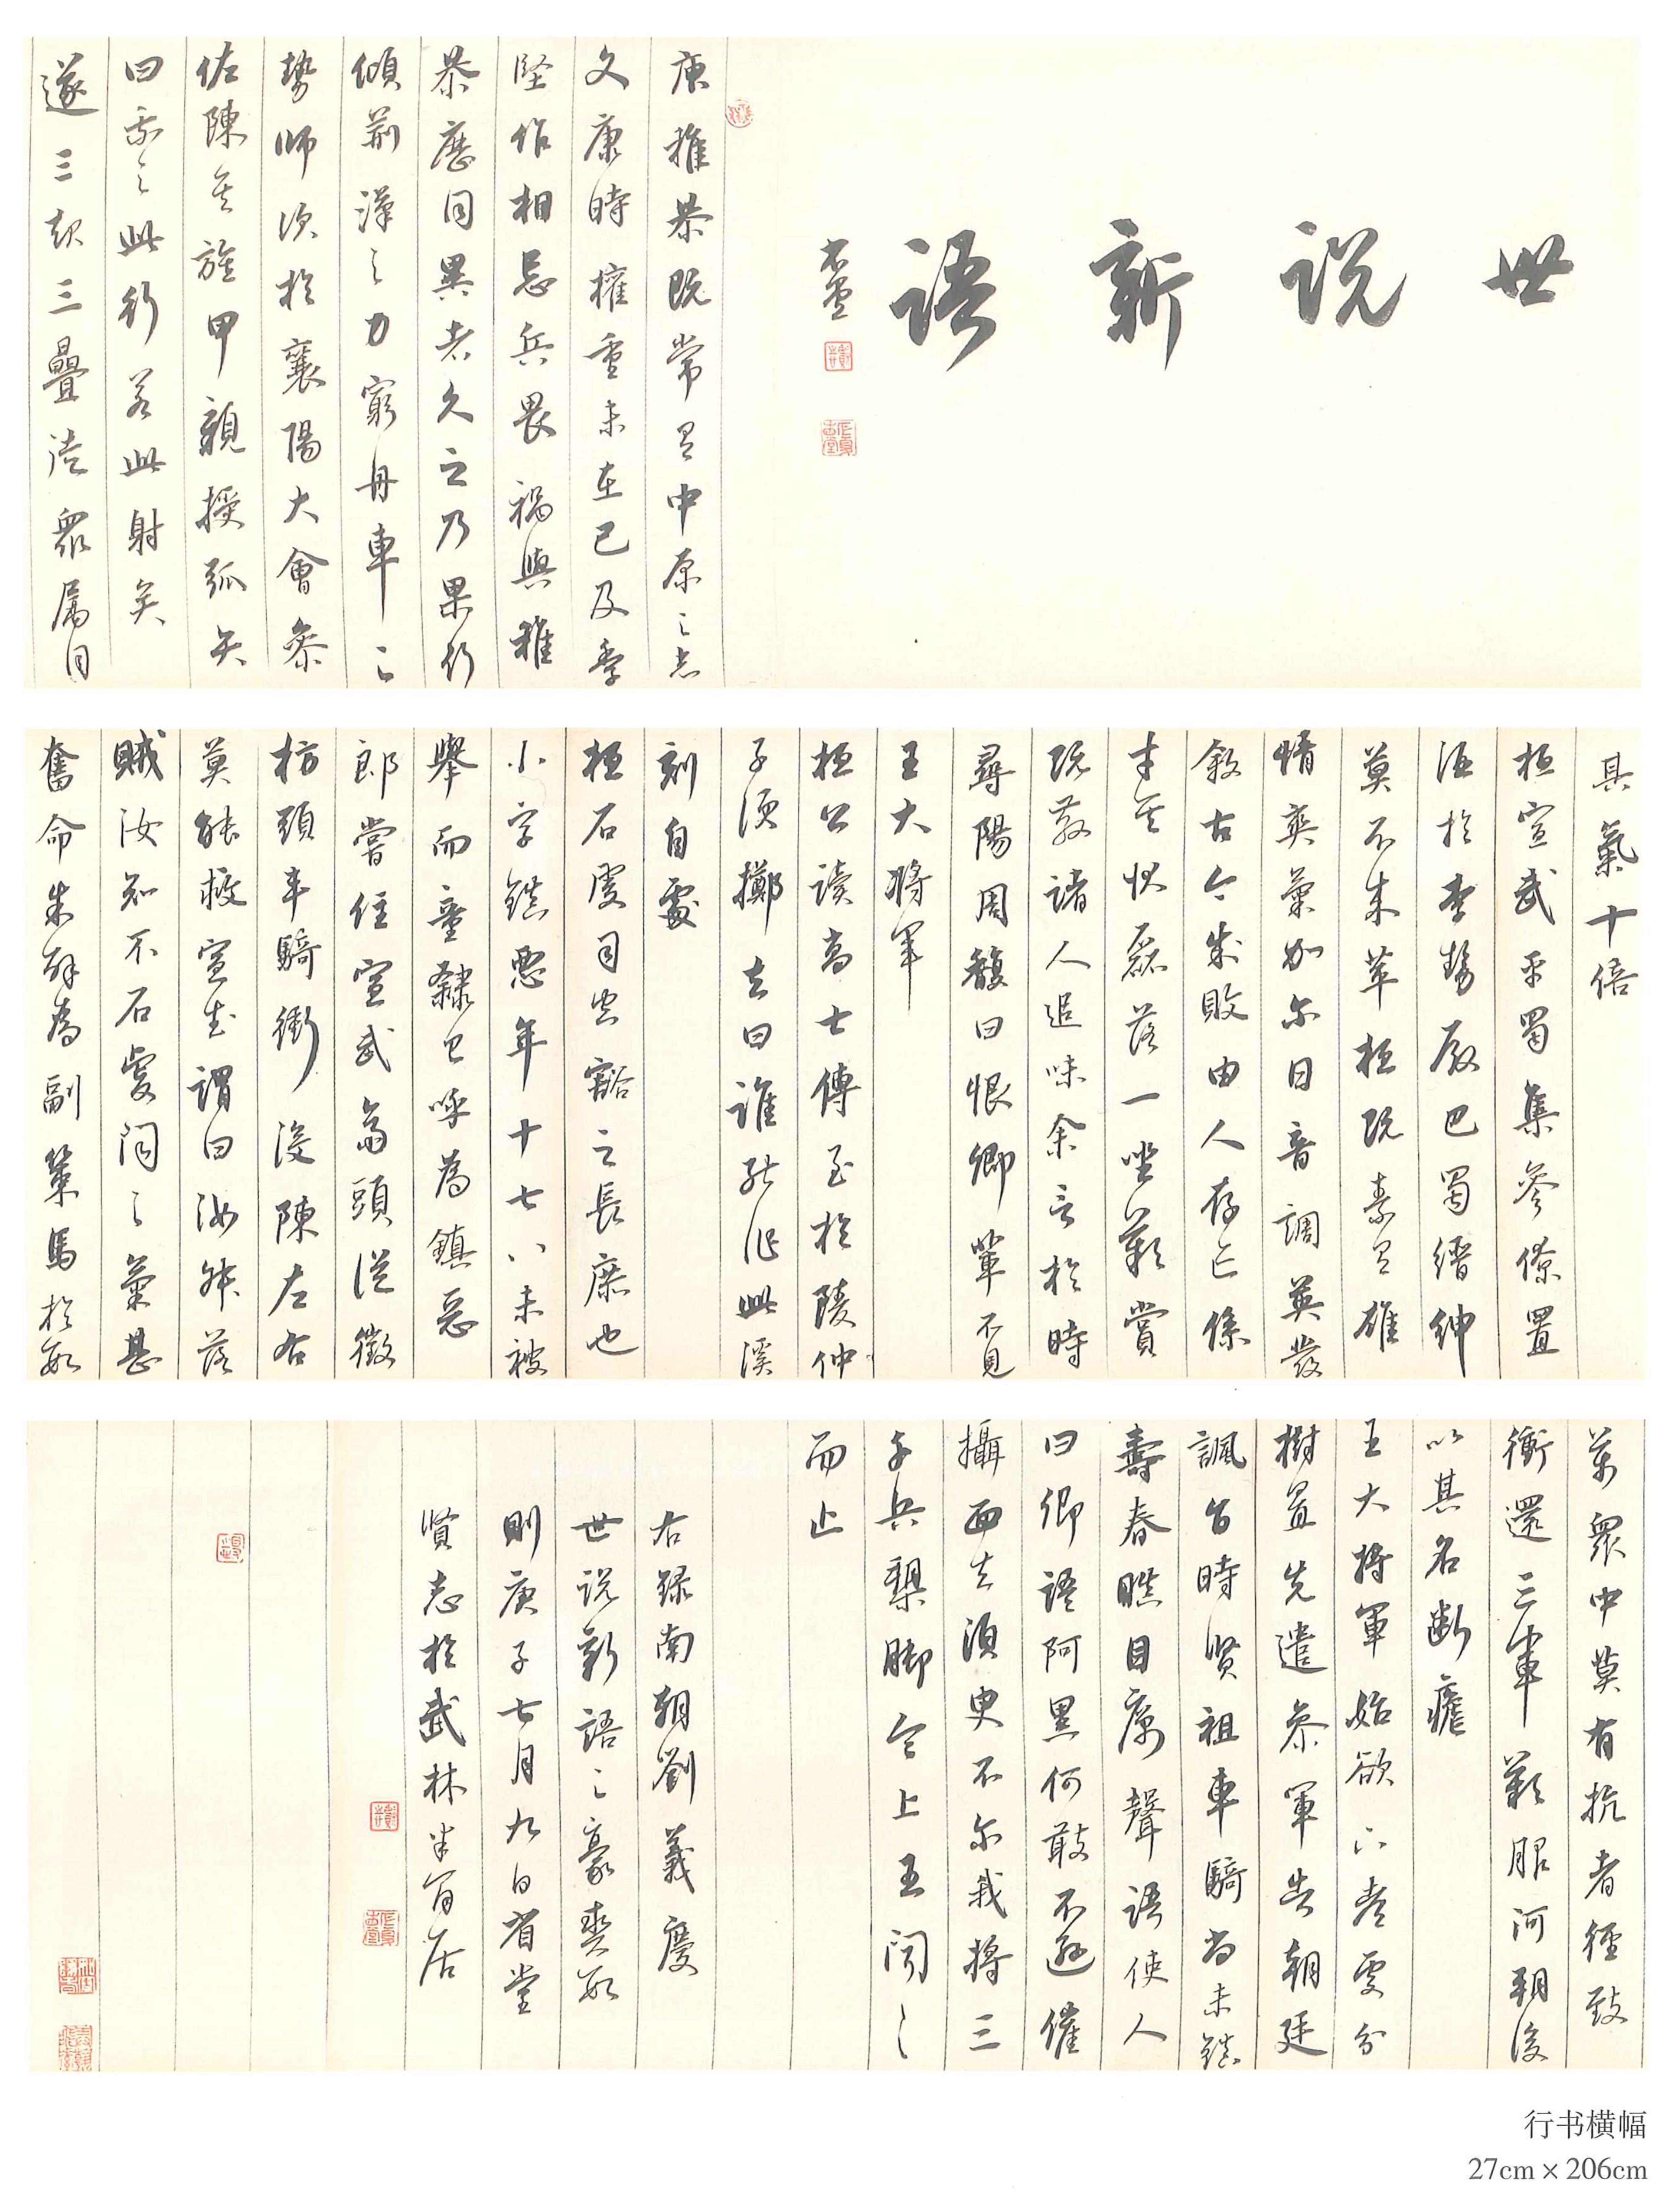 世说新語
庾稚恭既常有中原之志
文康時權重未在己及季
堅作相忌兵畏禍與稚
恭歷同異者久之乃果行
傾荊漢之力窮舟車之
勢師次於襄陽大會參
佐陳其旌甲親授弧矢
曰我之此行若此射矣
遂三起三疊徒衆屬目
其氣十倍
桓宣武平蜀集參僚置
酒於李勢殿巴蜀縉紳
莫不來萃桓既素有雄
情爽氣加尔日音調英發
敘古今成敗由人存亡係
才其狀磊落一坐歎賞
既散諸人追味余言於時
尋陽周馥曰恨卿輩不見
王大將軍
桓公讀高士傳至於陵仲
子便擲去曰誰能作此溪
刻自處
桓石虔司空豁之長庶也
小字鎮惡年十七八未被
舉而童隸已呼為鎮惡
郎嘗住宣武齋頭從徵
枋頭車騎衝沒陳左右
莫能救宣武謂曰汝叔落
賊汝知不石虔聞之氣甚
奮命朱辟為副策馬於數
萬衆中莫有抗者徑致
衝還三軍歎服河朔後
以其名斷瘧
王大將軍始欲下都處分
樹置先遣參軍告朝廷
諷旨時賢祖車騎尚未鎮
壽春瞋目厲聲語使人
曰卿語阿黑何敢不遜催
攝面去須臾不尔我將三
千兵槊腳令上王聞之
而止
右録南朝劉義慶
世说新語之豪爽數
則庚子七月九日省堂
賢志於武林半居
行书横幅
27cm × 206cm